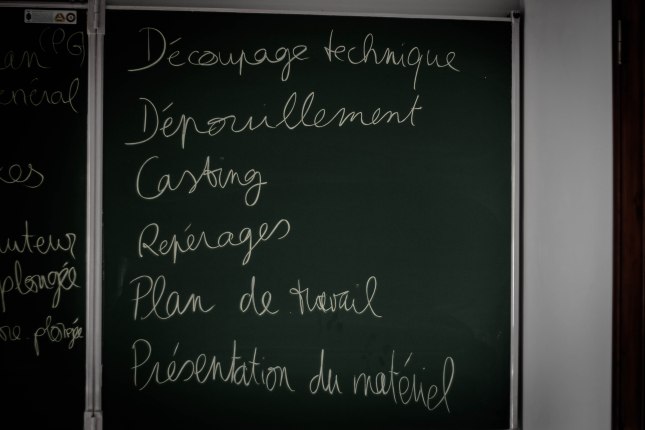 énéral
plongée
plongée
Découpage technique
Dépouillement
Casting
Repérages
Plan de travail
Présentation du matériel